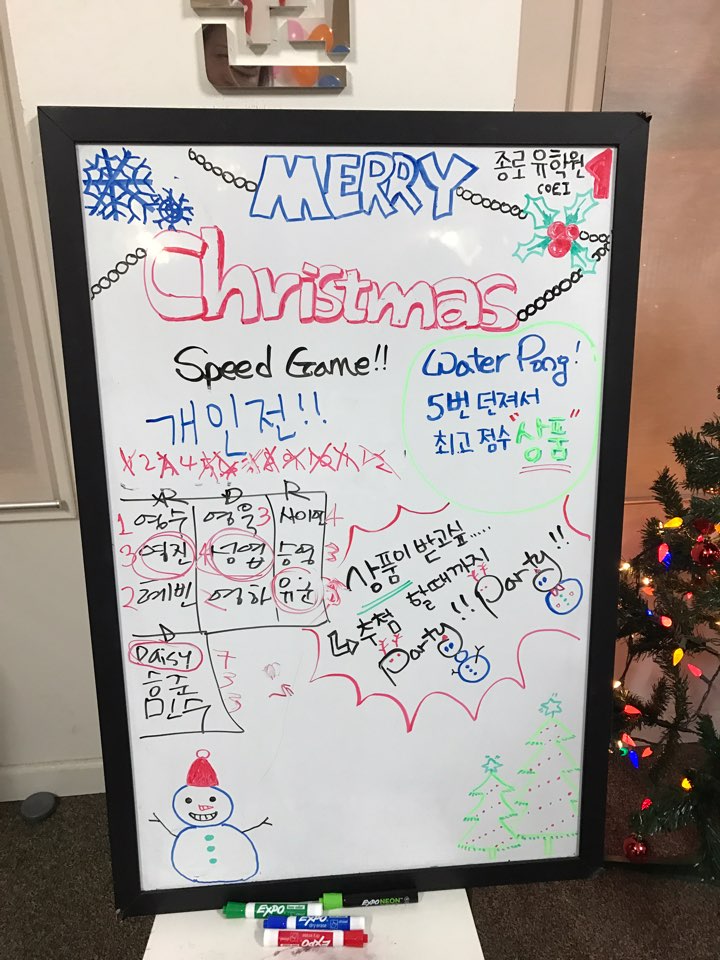 MERRY
종로유학원
COEI
Christmas
Speed Game!!
개인전!!
Water Pong!
5번 던져서
최고 점수 "상품"
1 영수
3 영진
2 예빈
영울 3
4 성엽
2 영하
4
승영 3
유순
Daisy 7
승준 3
민수 3
상품이 받고싶.....
추첨 할때까지
Party!! Party!!
EXPO
EXPO NEON
EXPO
EXPO